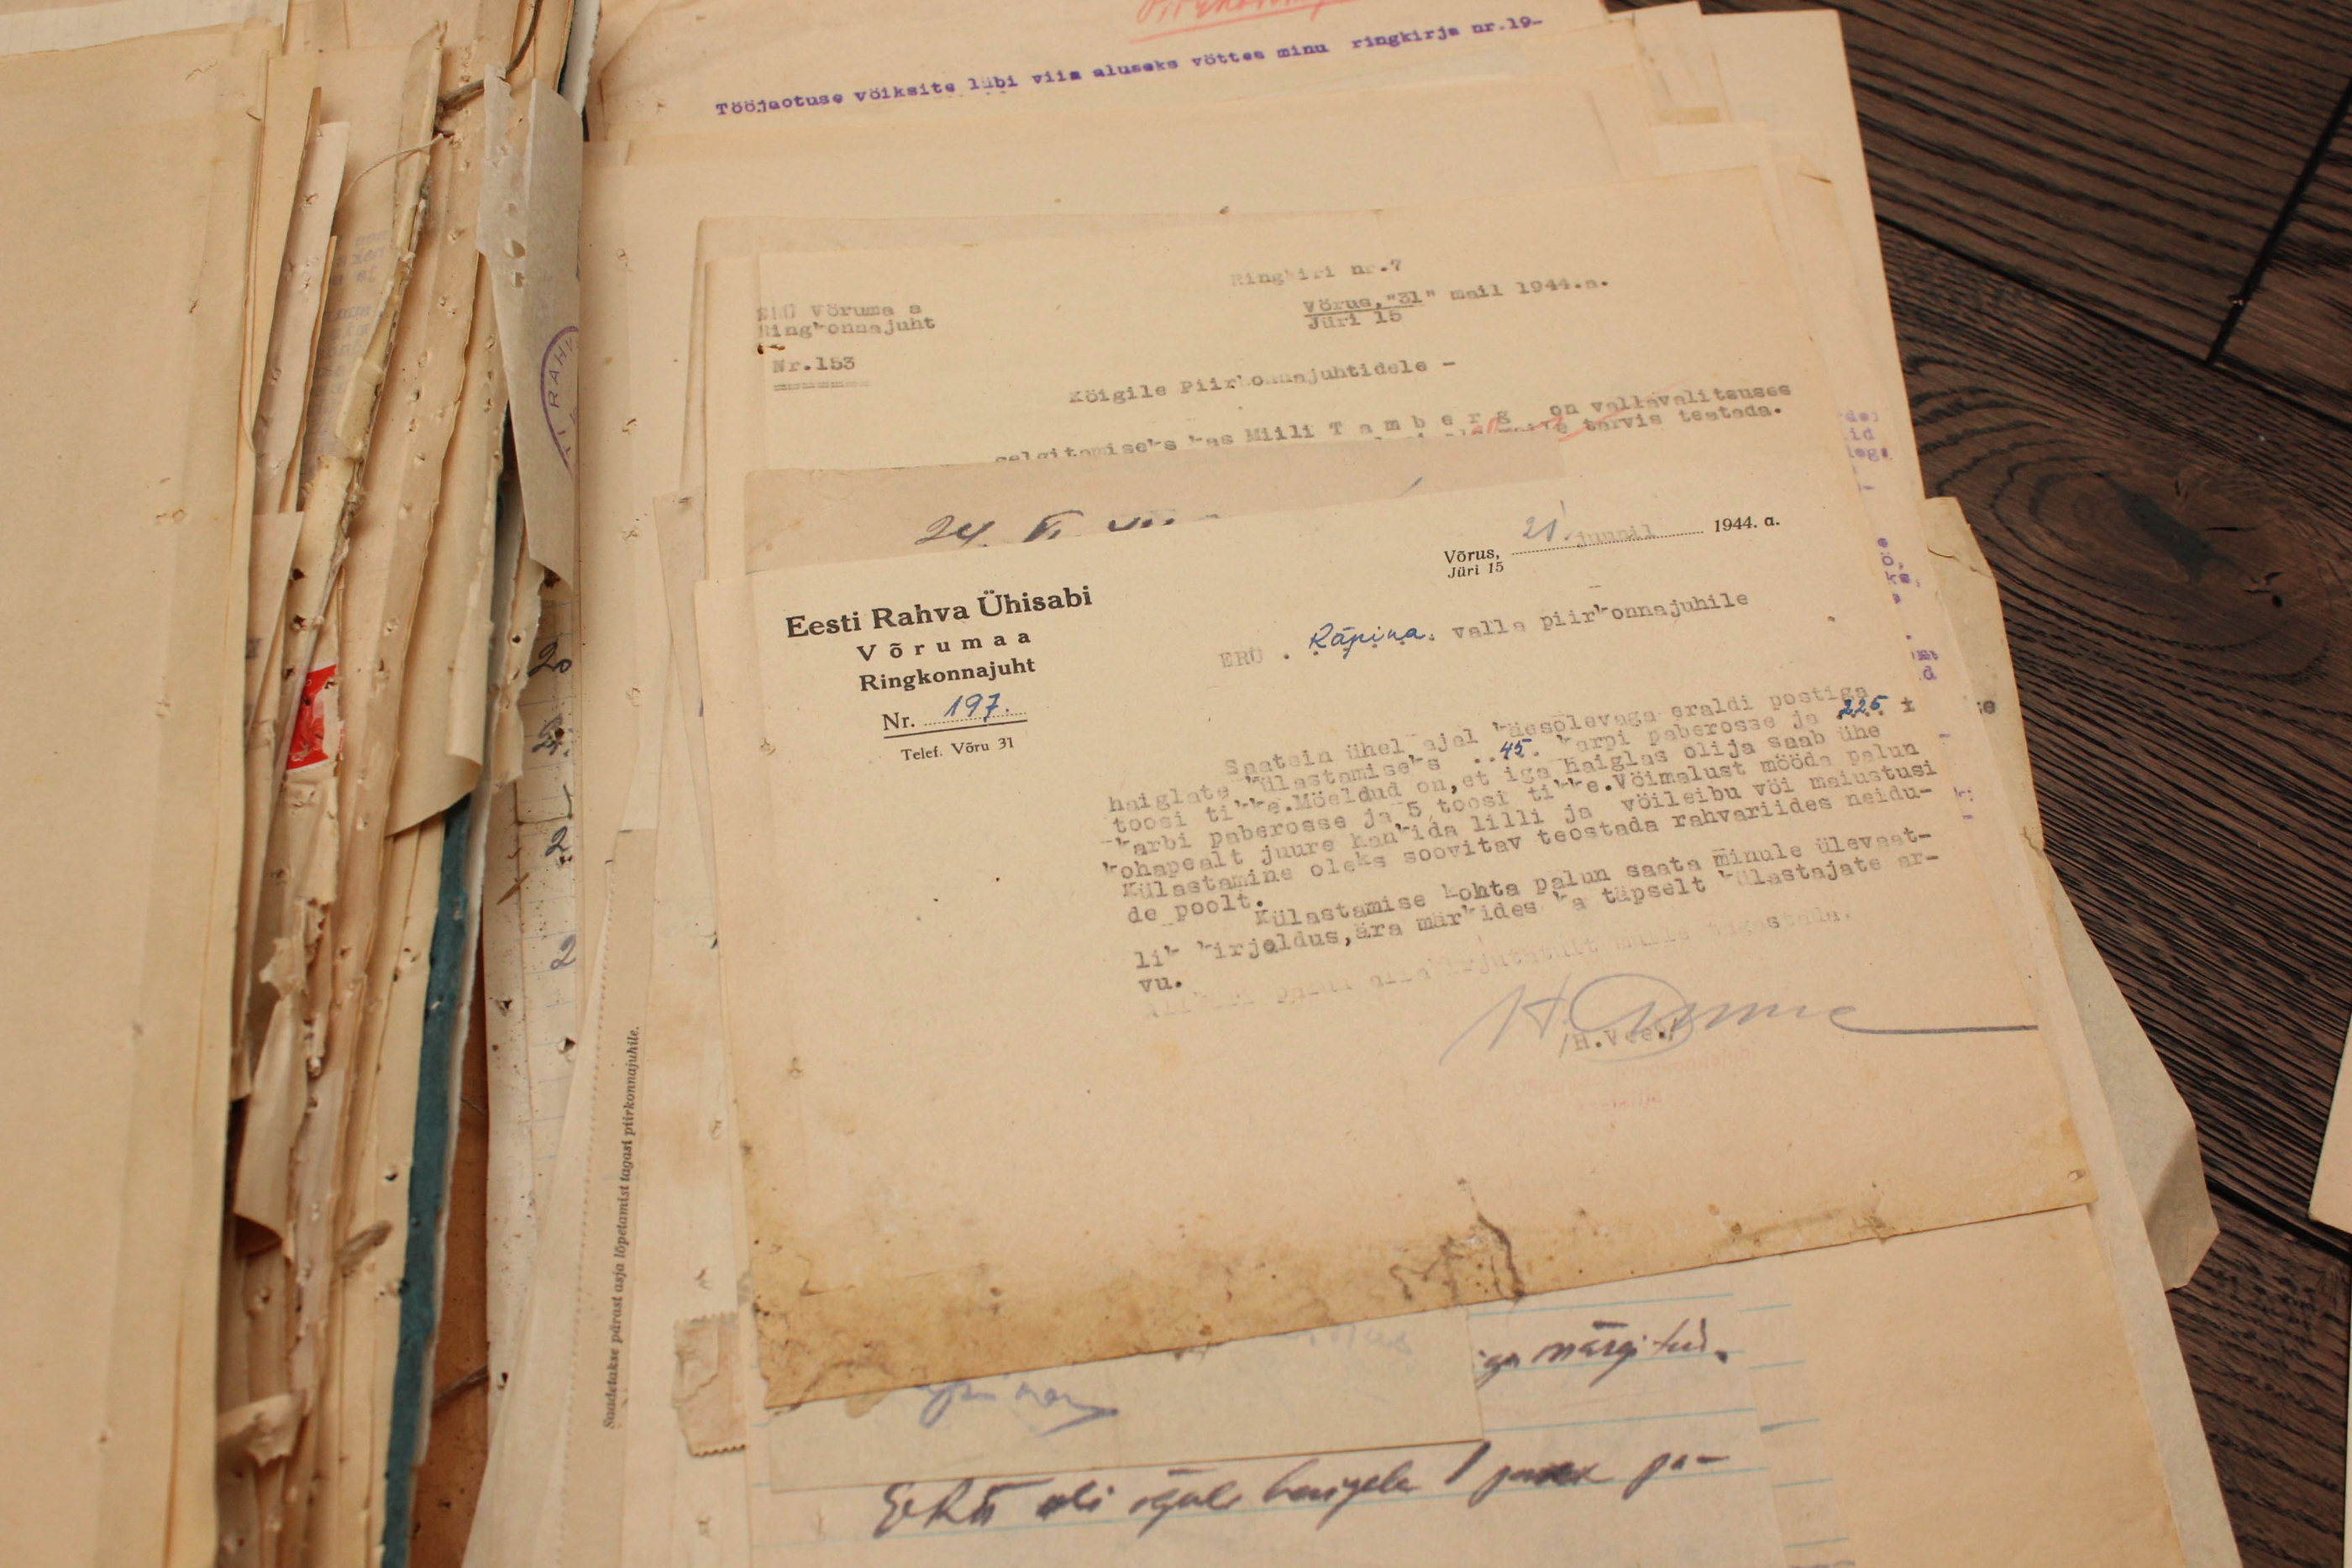 Tööjaotuse võiksite läbi viia aluseks võttes minu ringkirja nr.19-
Ringkiri nr.7
ERÜ Võrumaa
Ringkonnajuht
Võrus,"31" mail 1944.a.
Jüri 15
Nr.153
Kõigile Piirkonnajuhtidele -
selgitamiseks kas Miili T a m b e r g on vallavalitsuses
tarvis teatada.
24. VI
Võrus, 21. juunil 1944. a.
Jüri 15
Eesti Rahva Ühisabi
Võrumaa
Ringkonnajuht
Nr. 197.
Telef. Võru 31
ERÜ . Räpina. valla piirkonnajuhile
Saatsin ühel ajal käesolevaga eraldi postiga
haiglate külastamiseks ..45. karpi paberosse ja 225 t
toosi tikke.Mõeldud on,et iga haiglas olija saab ühe
karbi paberosse ja 5 toosi tikke.Võimalust mööda palun
kohapealt juure hankida lilli ja võileibu või maiustusi
Külastamine oleks soovitav teostada rahvariides neidu-
de poolt.
Külastamise kohta palun saata minule ülevaat-
lik kirjeldus,ära märkides ka täpselt külastajate ar-
vu.
Allkiri palun allakirjutatult mulle tagastada.
/H.Vee
Saadetakse pärast asja lõpetamist tagasi piirkonnajuhile.
RAHV
20
2
2
iga märgitud.
oli igale haigele 1